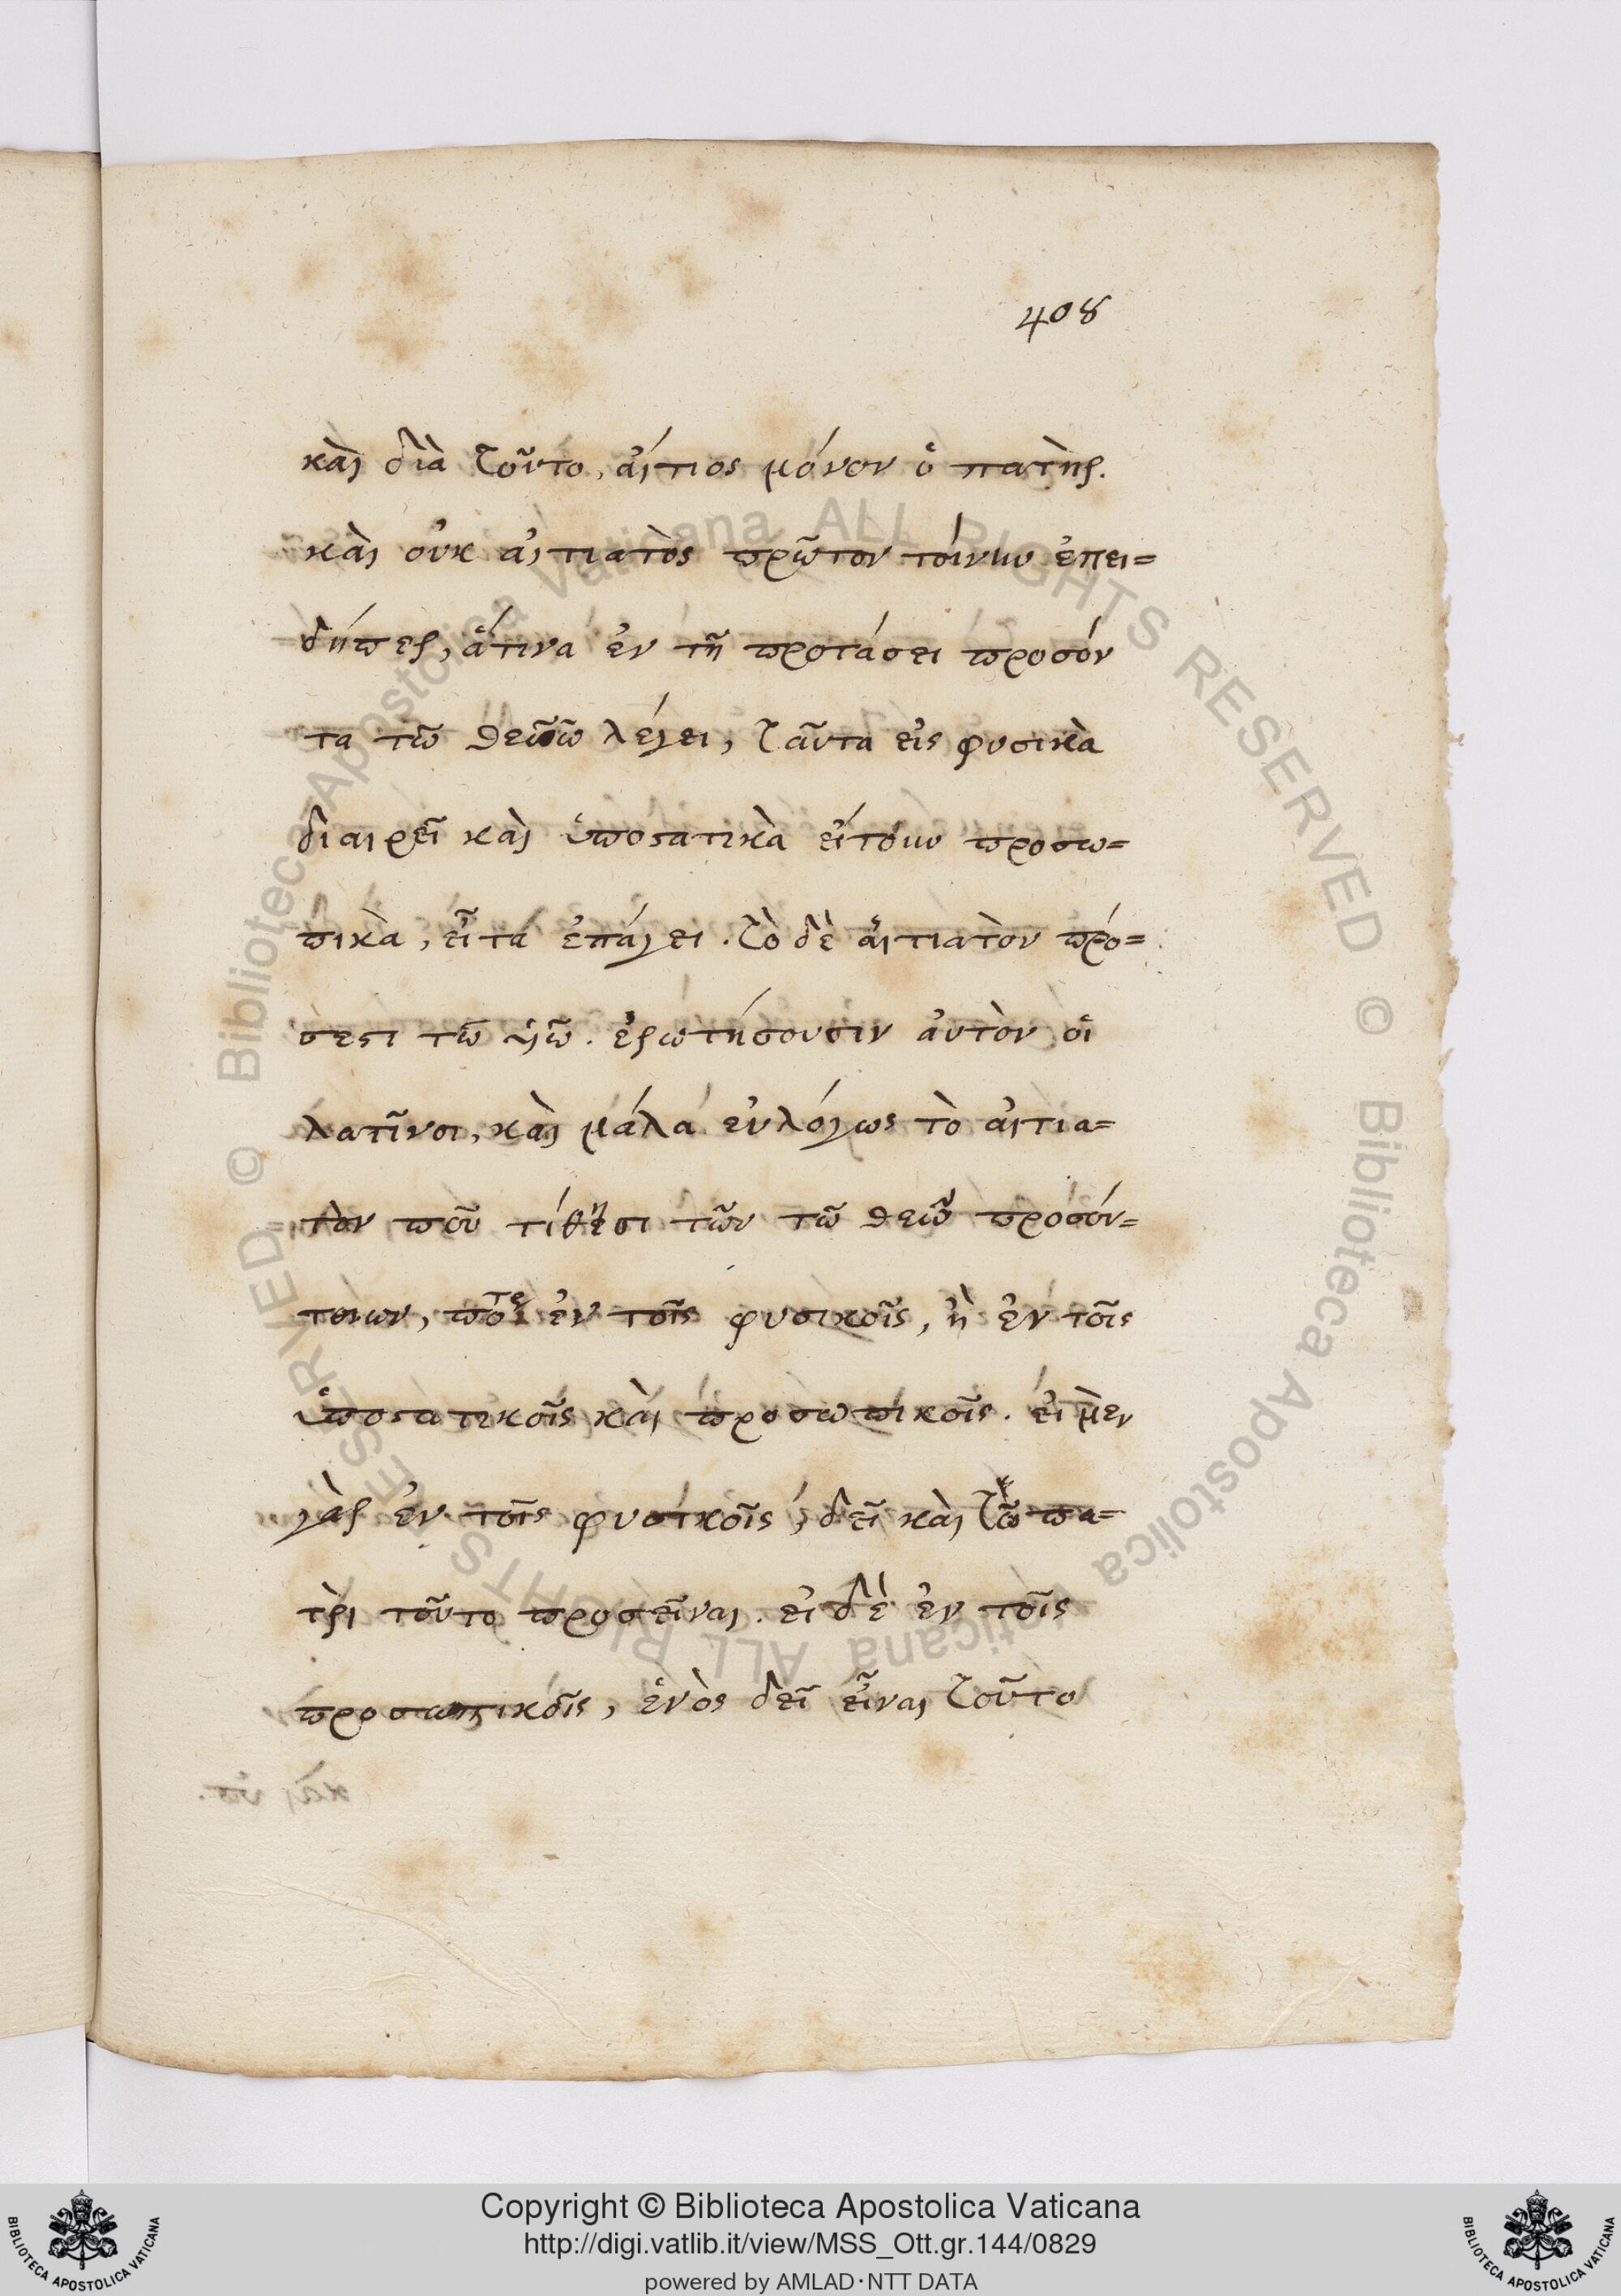 408
καὶ διὰ τοῦτο, αἴτιος μόνον ὁ πατὴρ.
καὶ οὐκ αἰτιατὸς πρῶτον τοίνυν ἐπει=
δήπερ, ἅτινα ἐν τῇ προτάσει προσόν
τα τῶ θεῶ λέγει, ταῦτα εἰς φυσικὰ
διαιρεῖ καὶ ὑποστατικὰ εἴτουν προσω=
πικὰ, εἶτα ἐπάγει. τὸ δὲ αἰτιατὸν πρό=
σεστι τῶ υἱῶ. ἐρωτήσουσιν αὐτὸν οἱ
λατῖνοι, καὶ μάλα εὐλόγως τὸ αἰτια=
τὸν ποῦ τίθησι τῶν τῶ θεῶ προσόν=
των, πότε ἐν τοῖς φυσικοῖς, ἢ ἐν τοῖς
ὑποστατικοῖς καὶ προσωπικοῖς. εἰ μὲν
γὰρ ἐν τοῖς φυσικοῖς, δεῖ καὶ τῶ πα=
τρὶ τοῦτο προσεῖναι. εἰ δὲ ἐν τοῖς
προσωπικοῖς, ἑνὸς δεῖ εἶναι τοῦτο
Copyright © Biblioteca Apostolica Vaticana
http://digi.vatlib.it/view/MSS_Ott.gr.144/0829
powered by AMLAD·NTT DATA
BIBLIOTECA APOSTOLICA VATICANA
BIBLIOTECA APOSTOLICA VATICANA
© Biblioteca Apostolica Vaticana ALL RIGHTS RESERVED
© Biblioteca Apostolica Vaticana ALL RIGHTS RESERVED